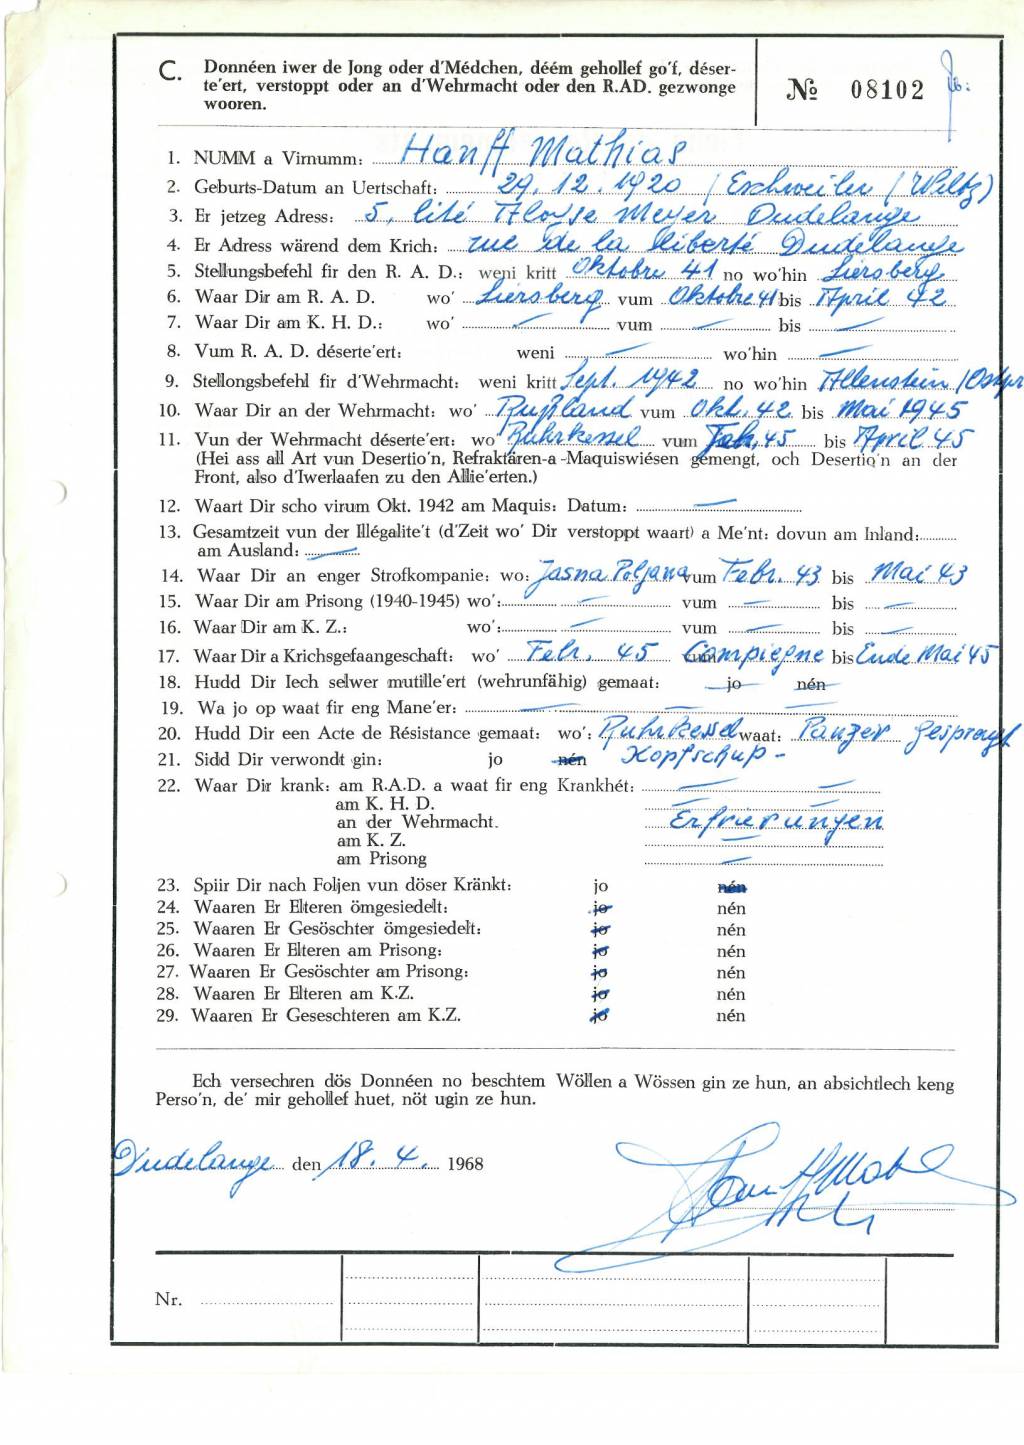 C. Donnéen iwer de Jong oder d'Médchen, déém gehollef go'f, déser-
te'ert, verstoppt oder an d'Wehrmacht oder den R.AD. gezwonge
wooren.
№ 08102
1. NUMM a Virnumm: Hanff Mathias
2. Geburts-Datum an Uertschaft: 29.12.1920 / Eschweiler / (Wiltz)
3. Er jetzeg Adress: 5, Cité Aloyse Meyer Dudelange
4. Er Adress wärend dem Krich: rue de la liberté Dudelange
5. Stellungsbefehl fir den R. A. D.: weni kritt Oktobre 41 no wo'hin Liersberg
6. Waar Dir am R. A. D. wo' Liersberg vum Oktobre 41 bis April 42
7. Waar Dir am K. H. D.: wo' — vum — bis —
8. Vum R. A. D. déserte'ert: weni — wo'hin —
9. Stellongsbefehl fir d'Wehrmacht: weni kritt Sept. 1942 no wo'hin Allenstein / Ostpr
10. Waar Dir an der Wehrmacht: wo' Rußland vum Okt. 42 bis Mai 1945
11. Vun der Wehrmacht déserte'ert: wo' Ruhrkessel vum Feb. 45 bis April 45
(Hei ass all Art vun Desertio'n, Refraktären-a-Maquiswiésen gemengt, och Desertio'n an der
Front, also d'Iwerlaafen zu den Allie'erten.)
12. Waart Dir scho virum Okt. 1942 am Maquis: Datum: —
13. Gesamtzeit vun der Illégalite't (d'Zeit wo' Dir verstoppt waart) a Me'nt: dovun am Inland:
am Ausland: —
14. Waar Dir an enger Strofkompanie: wo: Jasna Poljana vum Febr. 43 bis Mai 43
15. Waar Dir am Prisong (1940-1945) wo': — vum — bis —
16. Waar Dir am K. Z.: wo': — vum — bis —
17. Waar Dir a Krichsgefaangeschaft: wo' Febr. 45 vum Compiegne bis Ende Mai 45
18. Hudd Dir Iech selwer mutille'ert (wehrunfähig) gemaat: jo nén
19. Wa jo op waat fir eng Mane'er: — — —
20. Hudd Dir een Acte de Résistance gemaat: wo': Ruhrkessel waat: Panzer gesprengt
21. Sidd Dir verwondt gin: jo nén Kopfschup -
22. Waar Dir krank: am R.A.D. a waat fir eng Krankhét: — —
am K. H. D. — —
an der Wehrmacht. Erfrierungen
am K. Z. —
am Prisong —
23. Spiir Dir nach Foljen vun döser Kränkt: jo nén
24. Waaren Er Elteren ömgesiedelt: jo nén
25. Waaren Er Gesöschter ömgesiedelt: jo nén
26. Waaren Er Elteren am Prisong: jo nén
27. Waaren Er Gesöschter am Prisong: jo nén
28. Waaren Er Elteren am K.Z. jo nén
29. Waaren Er Geseschteren am K.Z. jo nén
Ech versechren dös Donnéen no beschtem Wöllen a Wössen gin ze hun, an absichtlech keng
Perso'n, de' mir gehollef huet, nöt ugin ze hun.
Dudelange den 18. 4. 1968
Nr.